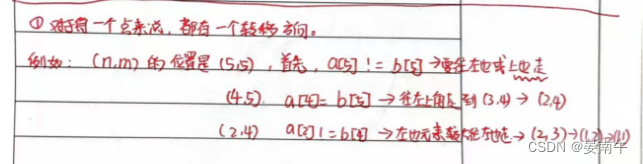 ① 对于每一个点来说，都有一个转移方向。
例如：(n,m) 的位置是 (5,5)，首先，a[5] != b[5] → 要往左也或上也走
(4,5). a[4] = b[5] → 往左上角走到 (3,4) → (2,4)
(2,4) a[2] != b[4] → 左边元素较大往左走 → (2,3) → (1,2) → (1,1)
CSDN @晏南午